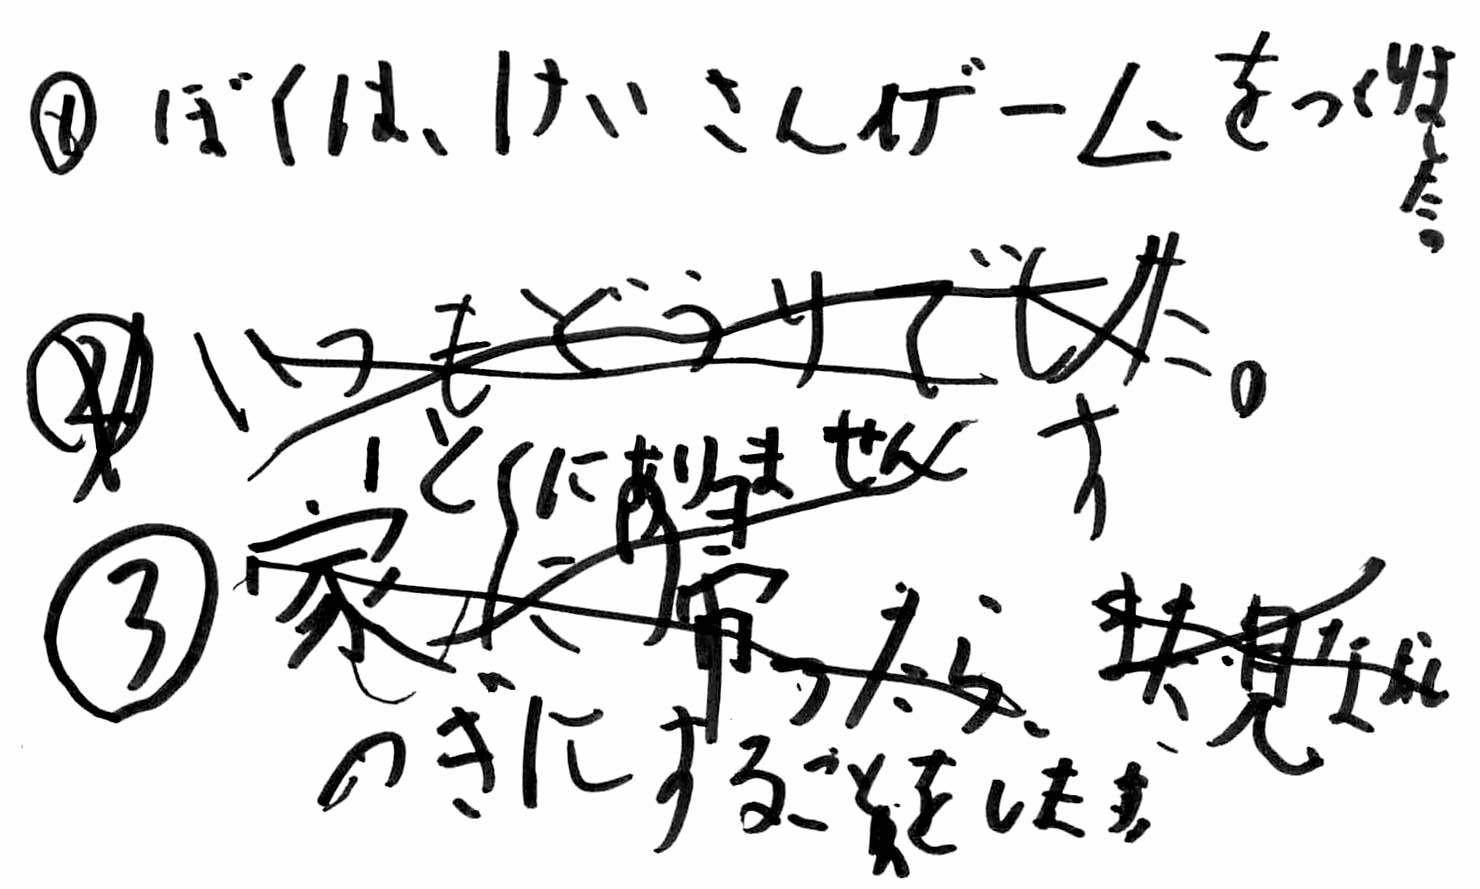 ① ぼくは、けいさんゲームをつくりました。
② いつもどうりでした。
す
とくにありません
③ 家に帰ったら、
のぎにすることをします